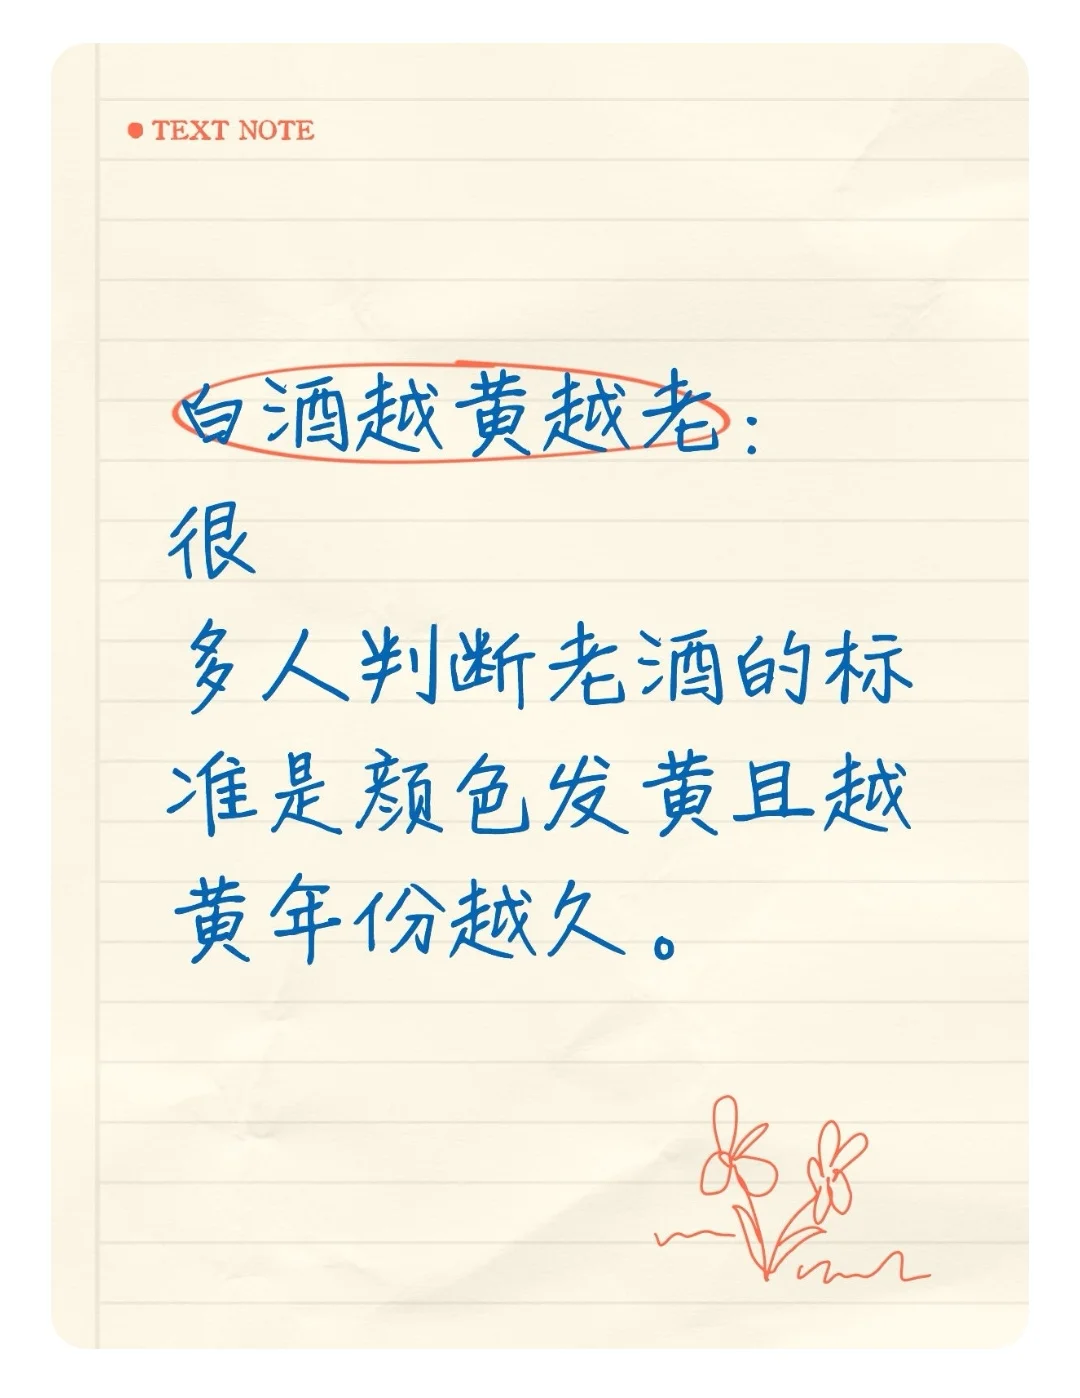 TEXT NOTE
白酒越黄越老:
很
多人判断老酒的标
准是颜色发黄且越
黄年份越久。